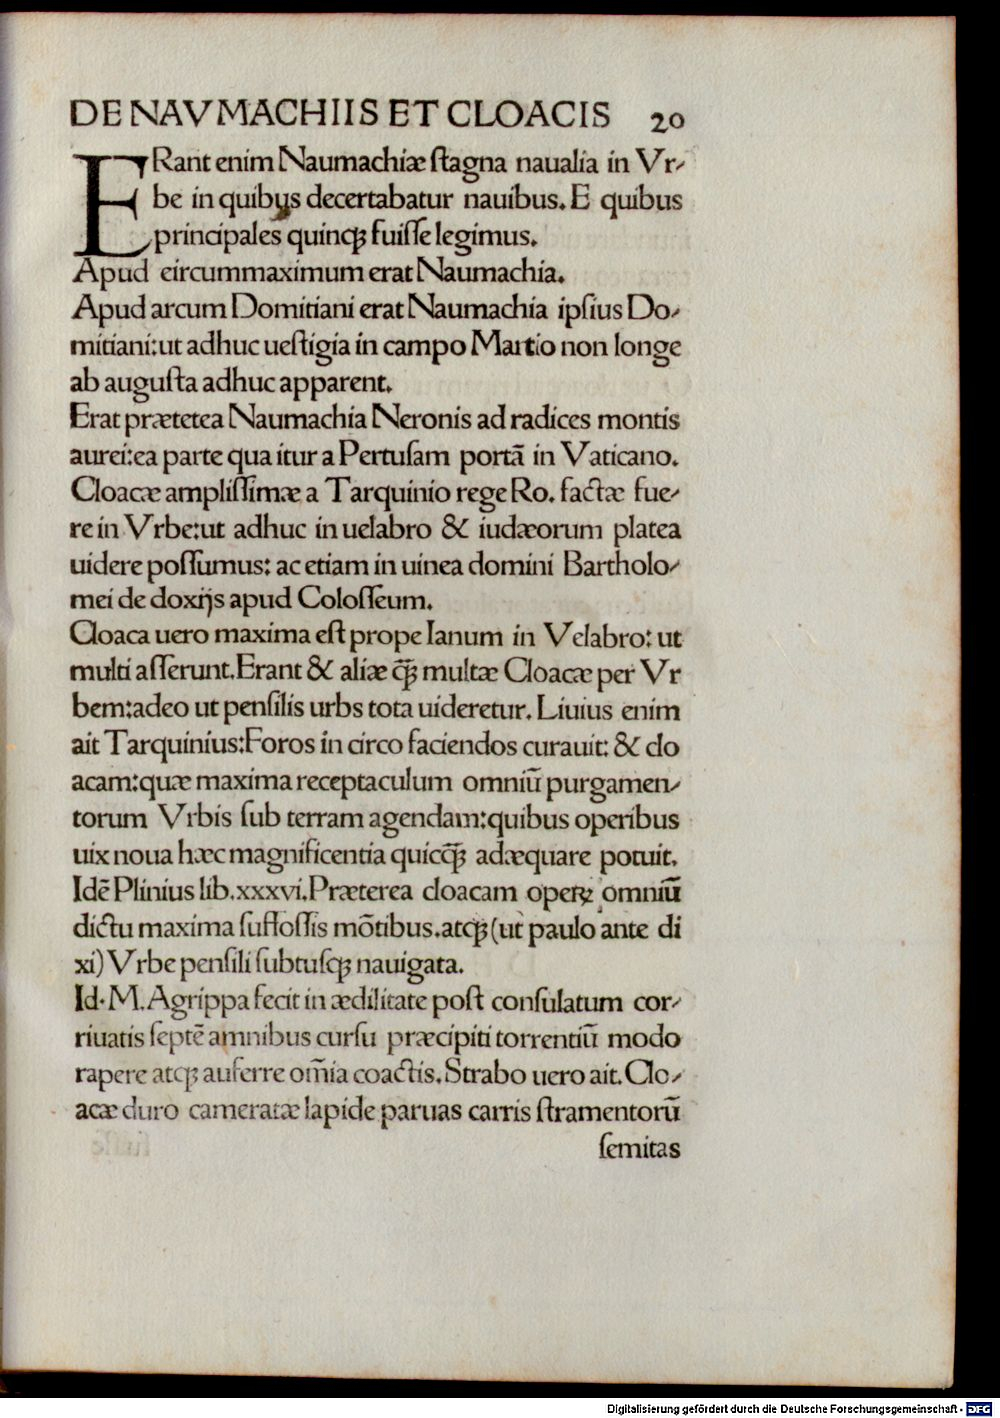 DE NAVMACHIIS ET CLOACIS 20
ERant enim Naumachiæ ſtagna naualia in Vr-
be in quibus decertabatur nauibus. E quibus
principales quinqꝫ fuiſſe legimus.
Apud eircummaximum erat Naumachia.
Apud arcum Domitiani erat Naumachia ipſius Do-
mitiani: ut adhuc ueſtigia in campo Martio non longe
ab auguſta adhuc apparent.
Erat prætetea Naumachia Neronis ad radices montis
aurei: ea parte qua itur a Pertuſam portā in Vaticano.
Cloacæ ampliſſimæ a Tarquinio rege Ro. factæ fue-
re in Vrbe: ut adhuc in uelabro & iudæorum platea
uidere poſſumus: ac etiam in uinea domini Bartholo-
mei de doxijs apud Coloſſeum.
Cloaca uero maxima eſt prope Ianum in Velabro: ut
multi aſſerunt. Erant & aliæ qꝫ̄ multæ Cloacæ per Vr
bem: adeo ut penſilis urbs tota uideretur. Liuius enim
ait Tarquinius: Foros in circo faciendos curauit: & clo
acam: quæ maxima receptaculum omniū purgamen-
torum Vrbis ſub terram agendam: quibus operibus
uix noua hæc magnificentia quicqꝫ̄ adæquare potuit.
Idē Plinius lib. xxxvi. Præterea cloacam operꝝ omniū
dictu maxima ſuffoſſis mōtibus. atqꝫ (ut paulo ante di
xi) Vrbe penſili ſubtuſqꝫ nauigata.
Id. M. Agrippa fecit in ædilitate poſt conſulatum cor-
riuatis ſeptē amnibus curſu præcipiti torrentiū modo
rapere atqꝫ auferre om̄ia coactis. Strabo uero ait. Clo-
acæ duro cameratæ lapide paruas carris ſtramentorū
ſemitas
Digitalisierung gefördert durch die Deutsche Forschungsgemeinschaft - DFG